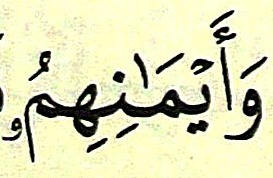 وَأَيۡمَٰنِهِمُۥ